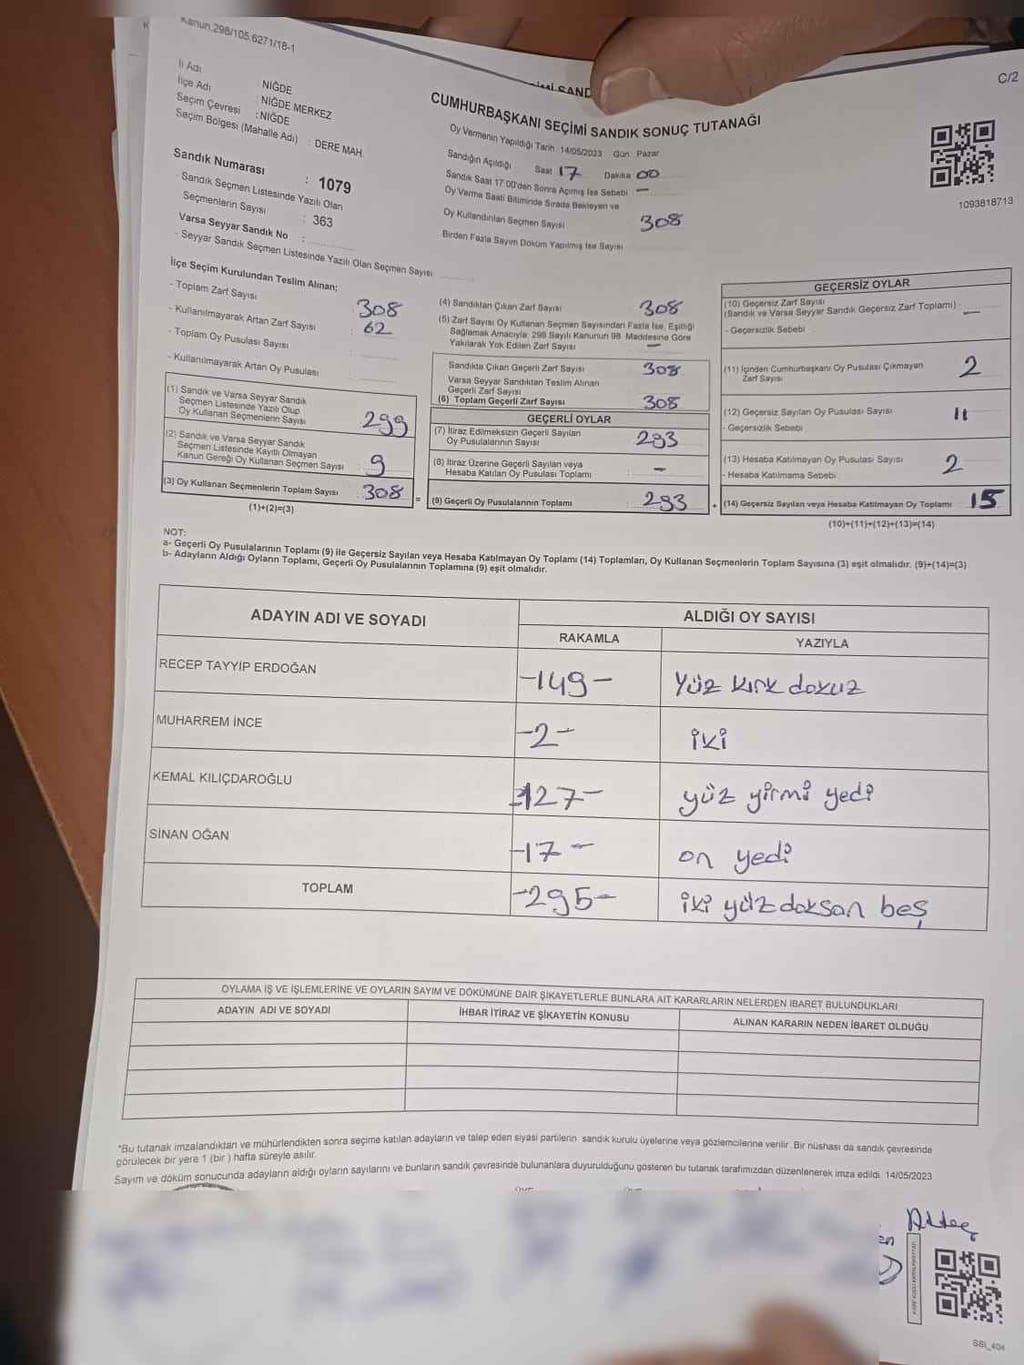 Kanun.298/105.6271/18-1
C/2
İl Adı NİĞDE
İlçe Adı : NİĞDE MERKEZ
Seçim Çevresi : NİĞDE
Seçim Bölgesi (Mahalle Adı) : DERE MAH.
Sandık Numarası : 1079
- Sandık Seçmen Listesinde Yazılı Olan
Seçmenlerin Sayısı : 363
Varsa Seyyar Sandık No :
- Seyyar Sandık Seçmen Listesinde Yazılı Olan Seçmen Sayısı
CUMHURBAŞKANI SEÇİMİ SANDIK SONUÇ TUTANAĞI
Oy Vermenin Yapıldığı Tarih 14/05/2023 Gün Pazar
Sandığın Açıldığı Saat 17 Dakika 00
Sandık Saat 17:00'den Sonra Açılmış İse Sebebi —
Oy Verme Saati Bitiminde Sırada Bekleyen ve
Oy Kullandırılan Seçmen Sayısı 308
Birden Fazla Sayım Döküm Yapılmış İse Sayısı
1093818713
İlçe Seçim Kurulundan Teslim Alınan;
- Toplam Zarf Sayısı 308
- Kullanılmayarak Artan Zarf Sayısı 62
- Toplam Oy Pusulası Sayısı
- Kullanılmayarak Artan Oy Pusulası
(1) Sandık ve Varsa Seyyar Sandık
Seçmen Listesinde Yazılı Olup
Oy Kullanan Seçmenlerin Sayısı 299
(2) Sandık ve Varsa Seyyar Sandık
Seçmen Listesinde Kayıtlı Olmayan
Kanun Gereği Oy Kullanan Seçmen Sayısı 9
(3) Oy Kullanan Seçmenlerin Toplam Sayısı 308
(1)+(2)=(3)
(4) Sandıktan Çıkan Zarf Sayısı 308
(5) Zarf Sayısı Oy Kullanan Seçmen Sayısından Fazla İse, Eşitliği
Sağlamak Amacıyla; 298 Sayılı Kanunun 98. Maddesine Göre
Yakılarak Yok Edilen Zarf Sayısı —
Sandıkta Çıkan Geçerli Zarf Sayısı 308
Varsa Seyyar Sandıktan Teslim Alınan
Geçerli Zarf Sayısı
(6) Toplam Geçerli Zarf Sayısı 308
GEÇERLİ OYLAR
(7) İtiraz Edilmeksizin Geçerli Sayılan
Oy Pusulalarının Sayısı 293
(8) İtiraz Üzerine Geçerli Sayılan veya
Hesaba Katılan Oy Pusulası Toplamı –
= (9) Geçerli Oy Pusulalarının Toplamı 293
GEÇERSİZ OYLAR
(10) Geçersiz Zarf Sayısı
(Sandık ve Varsa Seyyar Sandık Geçersiz Zarf Toplamı) : —
- Geçersizlik Sebebi
(11) İçinden Cumhurbaşkanı Oy Pusulası Çıkmayan
Zarf Sayısı 2
(12) Geçersiz Sayılan Oy Pusulası Sayısı 11
- Geçersizlik Sebebi
(13) Hesaba Katılmayan Oy Pusulası Sayısı 2
- Hesaba Katılmama Sebebi
+ (14) Geçersiz Sayılan veya Hesaba Katılmayan Oy Toplamı 15
(10)+(11)+(12)+(13)=(14)
NOT:
a- Geçerli Oy Pusulalarının Toplamı (9) ile Geçersiz Sayılan veya Hesaba Katılmayan Oy Toplamı (14) Toplamları, Oy Kullanan Seçmenlerin Toplam Sayısına (3) eşit olmalıdır. (9)+(14)=(3)
b- Adayların Aldığı Oyların Toplamı, Geçerli Oy Pusulalarının Toplamına (9) eşit olmalıdır.
ADAYIN ADI VE SOYADI ALDIĞI OY SAYISI
RAKAMLA YAZIYLA
RECEP TAYYİP ERDOĞAN -149- Yüz kırk dokuz
MUHARREM İNCE -2- iki
KEMAL KILIÇDAROĞLU -127- yüz yirmi yedi
SİNAN OĞAN -17- on yedi
TOPLAM -295- iki yüz doksan beş
OYLAMA İŞ VE İŞLEMLERİNE VE OYLARIN SAYIM VE DÖKÜMÜNE DAİR ŞİKAYETLERLE BUNLARA AİT KARARLARIN NELERDEN İBARET BULUNDUKLARI
ADAYIN ADI VE SOYADI İHBAR İTİRAZ VE ŞİKAYETİN KONUSU ALINAN KARARIN NEDEN İBARET OLDUĞU
*Bu tutanak imzalandıktan ve mühürlendikten sonra seçime katılan adayların ve talep eden siyasi partilerin sandık kurulu üyelerine veya gözlemcilerine verilir. Bir nüshası da sandık çevresinde
görülecek bir yere 1 (bir) hafta süreyle asılır.
Sayım ve döküm sonucunda adayların aldığı oyların sayılarını ve bunların sandık çevresinde bulunanlara duyurulduğunu gösteren bu tutanak tarafımızdan düzenlenerek imza edildi. 14/05/2023
SBI_404